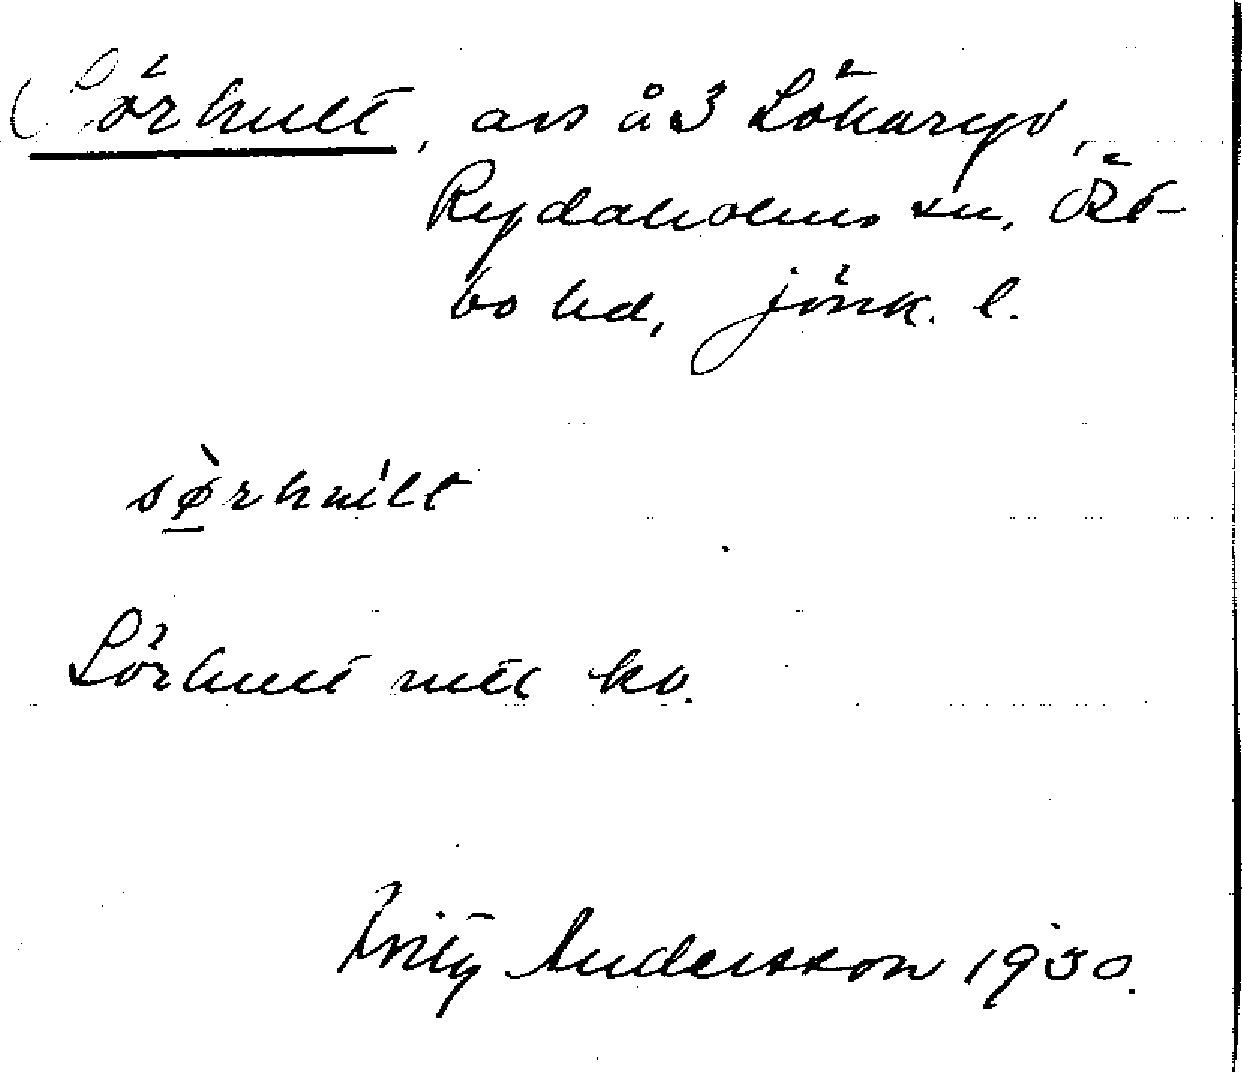 Sörhult, avs å 3 Lökaryd,
Rydaholms sn, Öst-
bo hd, Jönk. l.
sø̀rhúlt
Sörhult
Andersson 1930.